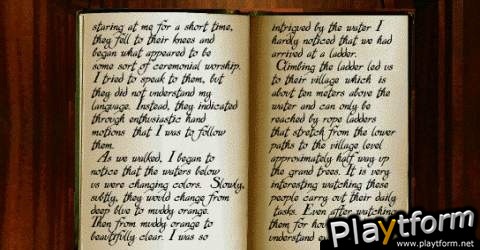 staring at me for a short time,
they fell to their knees and
began what appeared to be
some sort of ceremonial worship.
I tried to speak to them, but
they did not understand my
language. Instead, they indicated
through enthusiastic hand
motions that I was to follow
them.
As we walked, I began to
notice that the waters below
us were changing colors. Slowly,
subtly, they would change from
deep blue to muddy orange.
Then from muddy orange to
beautifully clear. I was so
intrigued by the water I
hardly noticed that we had
arrived at a ladder.
Climbing the ladder led us
to their village which is
about ten meters above the
water and can only be
reached by rope ladders
that stretch from the lower
paths to the village level
approximately half way up
the grand trees. It is very
interesting watching these
people carry out their daily
tasks. Even after watching
them for ho
understand e
Playtform
www.playtform.net